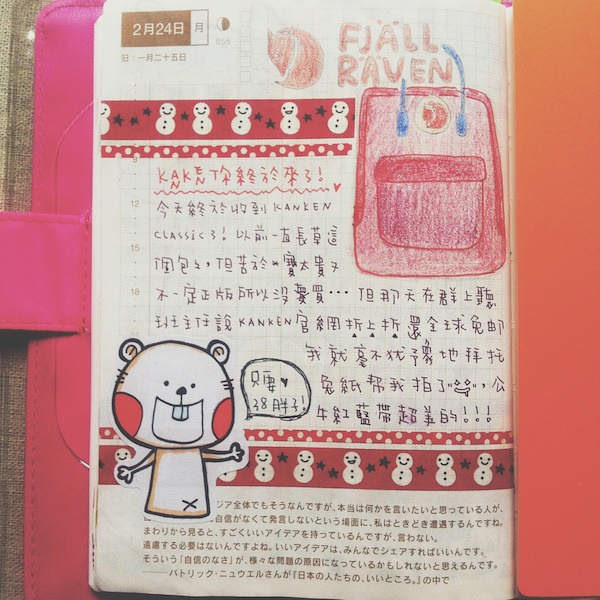 2月24日 月
955
旧:一月二十五日
FJÄLL
RÄVEN
9
KAKEN 你終於來了!
12
今天終於收到 KANKEN
CLASSIC了! 以前一直長草這
15
個包包, 但苦於某寶太貴又
18
不一定正版所以沒捨得買… 但那天在群上聽
班主任說 KANKEN 官網折上折還全球免郵
我就毫不猶豫地拜托
兔紙幫我拍了, 公
牛紅藍帶超美的!!!
只要♥
38胖子!
ジア全体でもそうなんですが、本当は何かを言いたいと思っている人が、
自信がなくて発言しないという場面に、私はときどき遭遇するんですね。
まわりから見ると、すごくいいアイデアを持っているんですが、言わない。
遠慮する必要はないんですよね。いいアイデアは、みんなでシェアすればいいんです。
そういう「自信のなさ」が、様々な問題の原因になっているかもしれないと思えるんです。
――パトリック・ニュウエルさんが『日本の人たちの、いいところ。』の中で